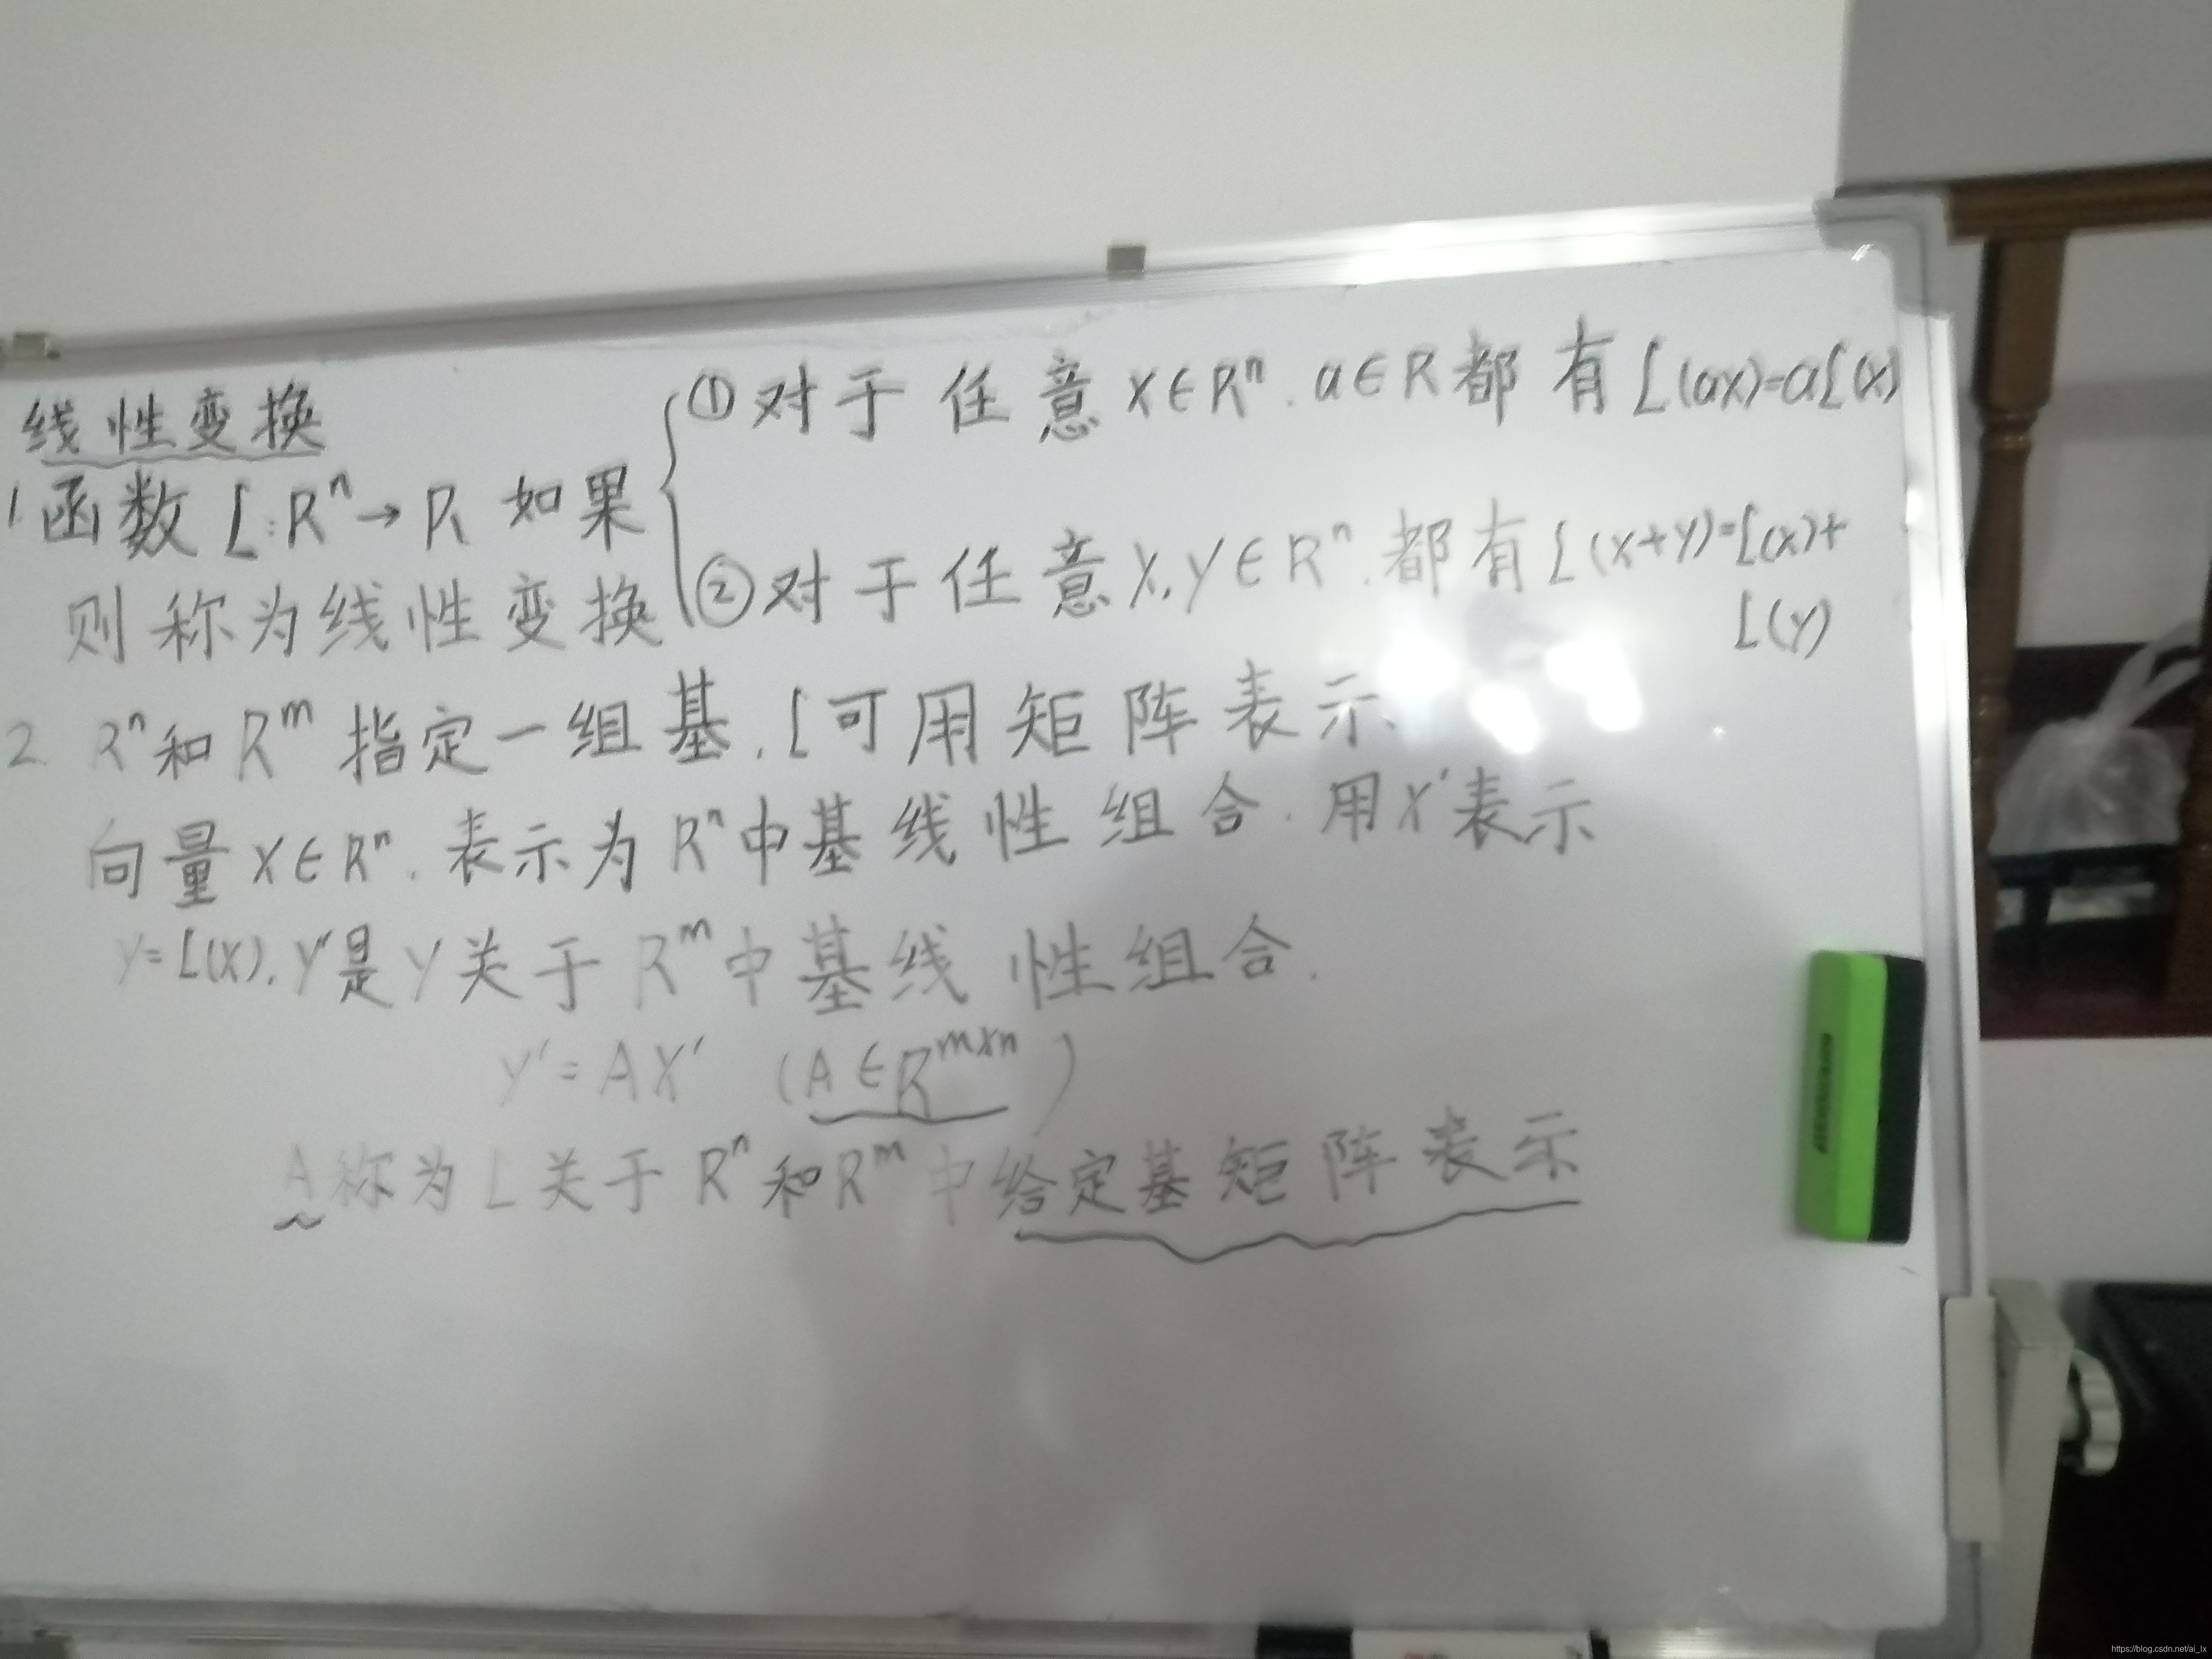 线性变换
1.函数 L:Rⁿ→R 如果
①对于任意x∈Rⁿ.a∈R都有L(ax)=aL(x)
②对于任意x,y∈Rⁿ.都有L(x+y)=L(x)+
L(y)
则称为线性变换
2. Rⁿ和Rᵐ指定一组基.L可用矩阵表示
向量x∈Rⁿ.表示为Rⁿ中基线性组合.用x'表示
y=L(x).y'是y关于Rᵐ中基线性组合.
y'=Ax' (A∈Rᵐˣⁿ)
A称为L关于Rⁿ和Rᵐ中给定基矩阵表示
https://blog.csdn.net/ai_lx